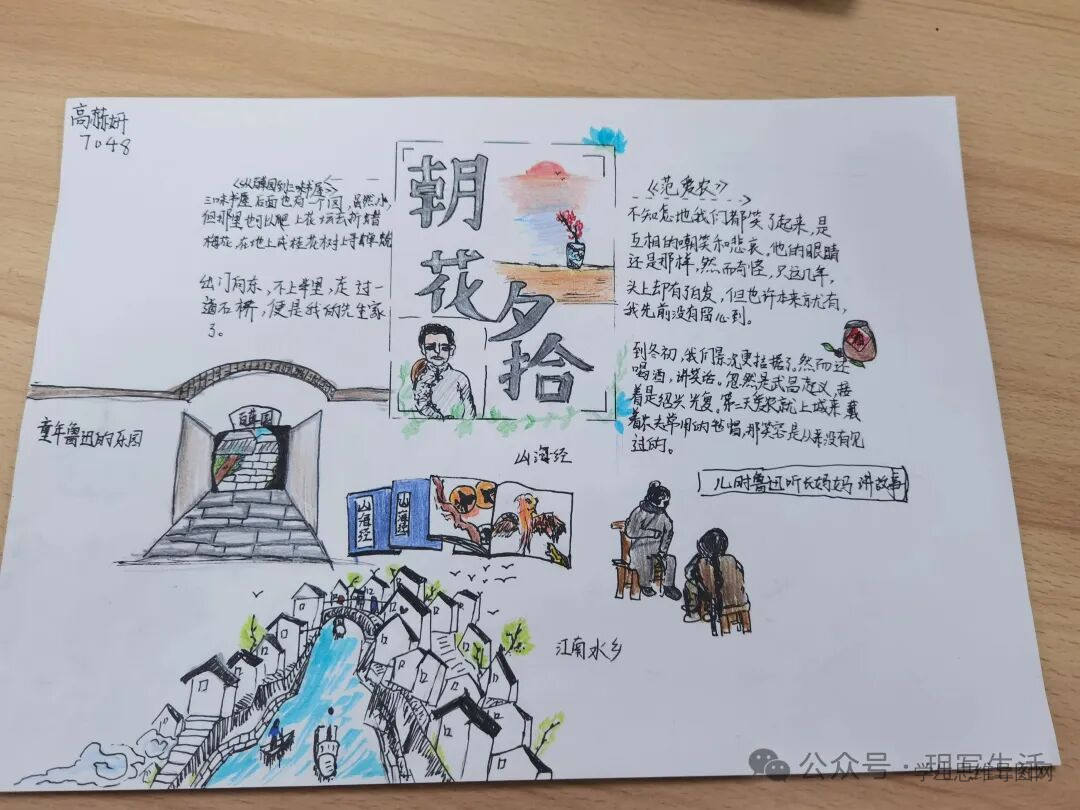 高赫妍
7048
《从百草园到三味书屋》
三味书屋后面也有一个园,虽然小,
但那里也可以爬上花坛去折蜡
梅花,在地上或桂花树上寻蝉蜕
出门向东,不上半里,走过一
道石桥,便是我的先生家
了。
朝
花
夕
拾
《范爱农》
不知怎地我们都笑了起来,是
互相的嘲笑和悲哀。他的眼睛
还是那样,然而奇怪,只这几年,
头上却有了白发,但也许本来就有,
我先前没有留心到。
到冬初,我们景况更拮据了。然而还
喝酒,讲笑话。忽然是武昌起义,接
着是绍兴光复。第二天爱农就上城来,戴
着农夫常用的毡帽,那笑容是从来没有见
过的。
童年鲁迅的乐园
百草园
山海经
山海经
山海经
儿时鲁迅听长妈妈讲故事
江南水乡
公众号·